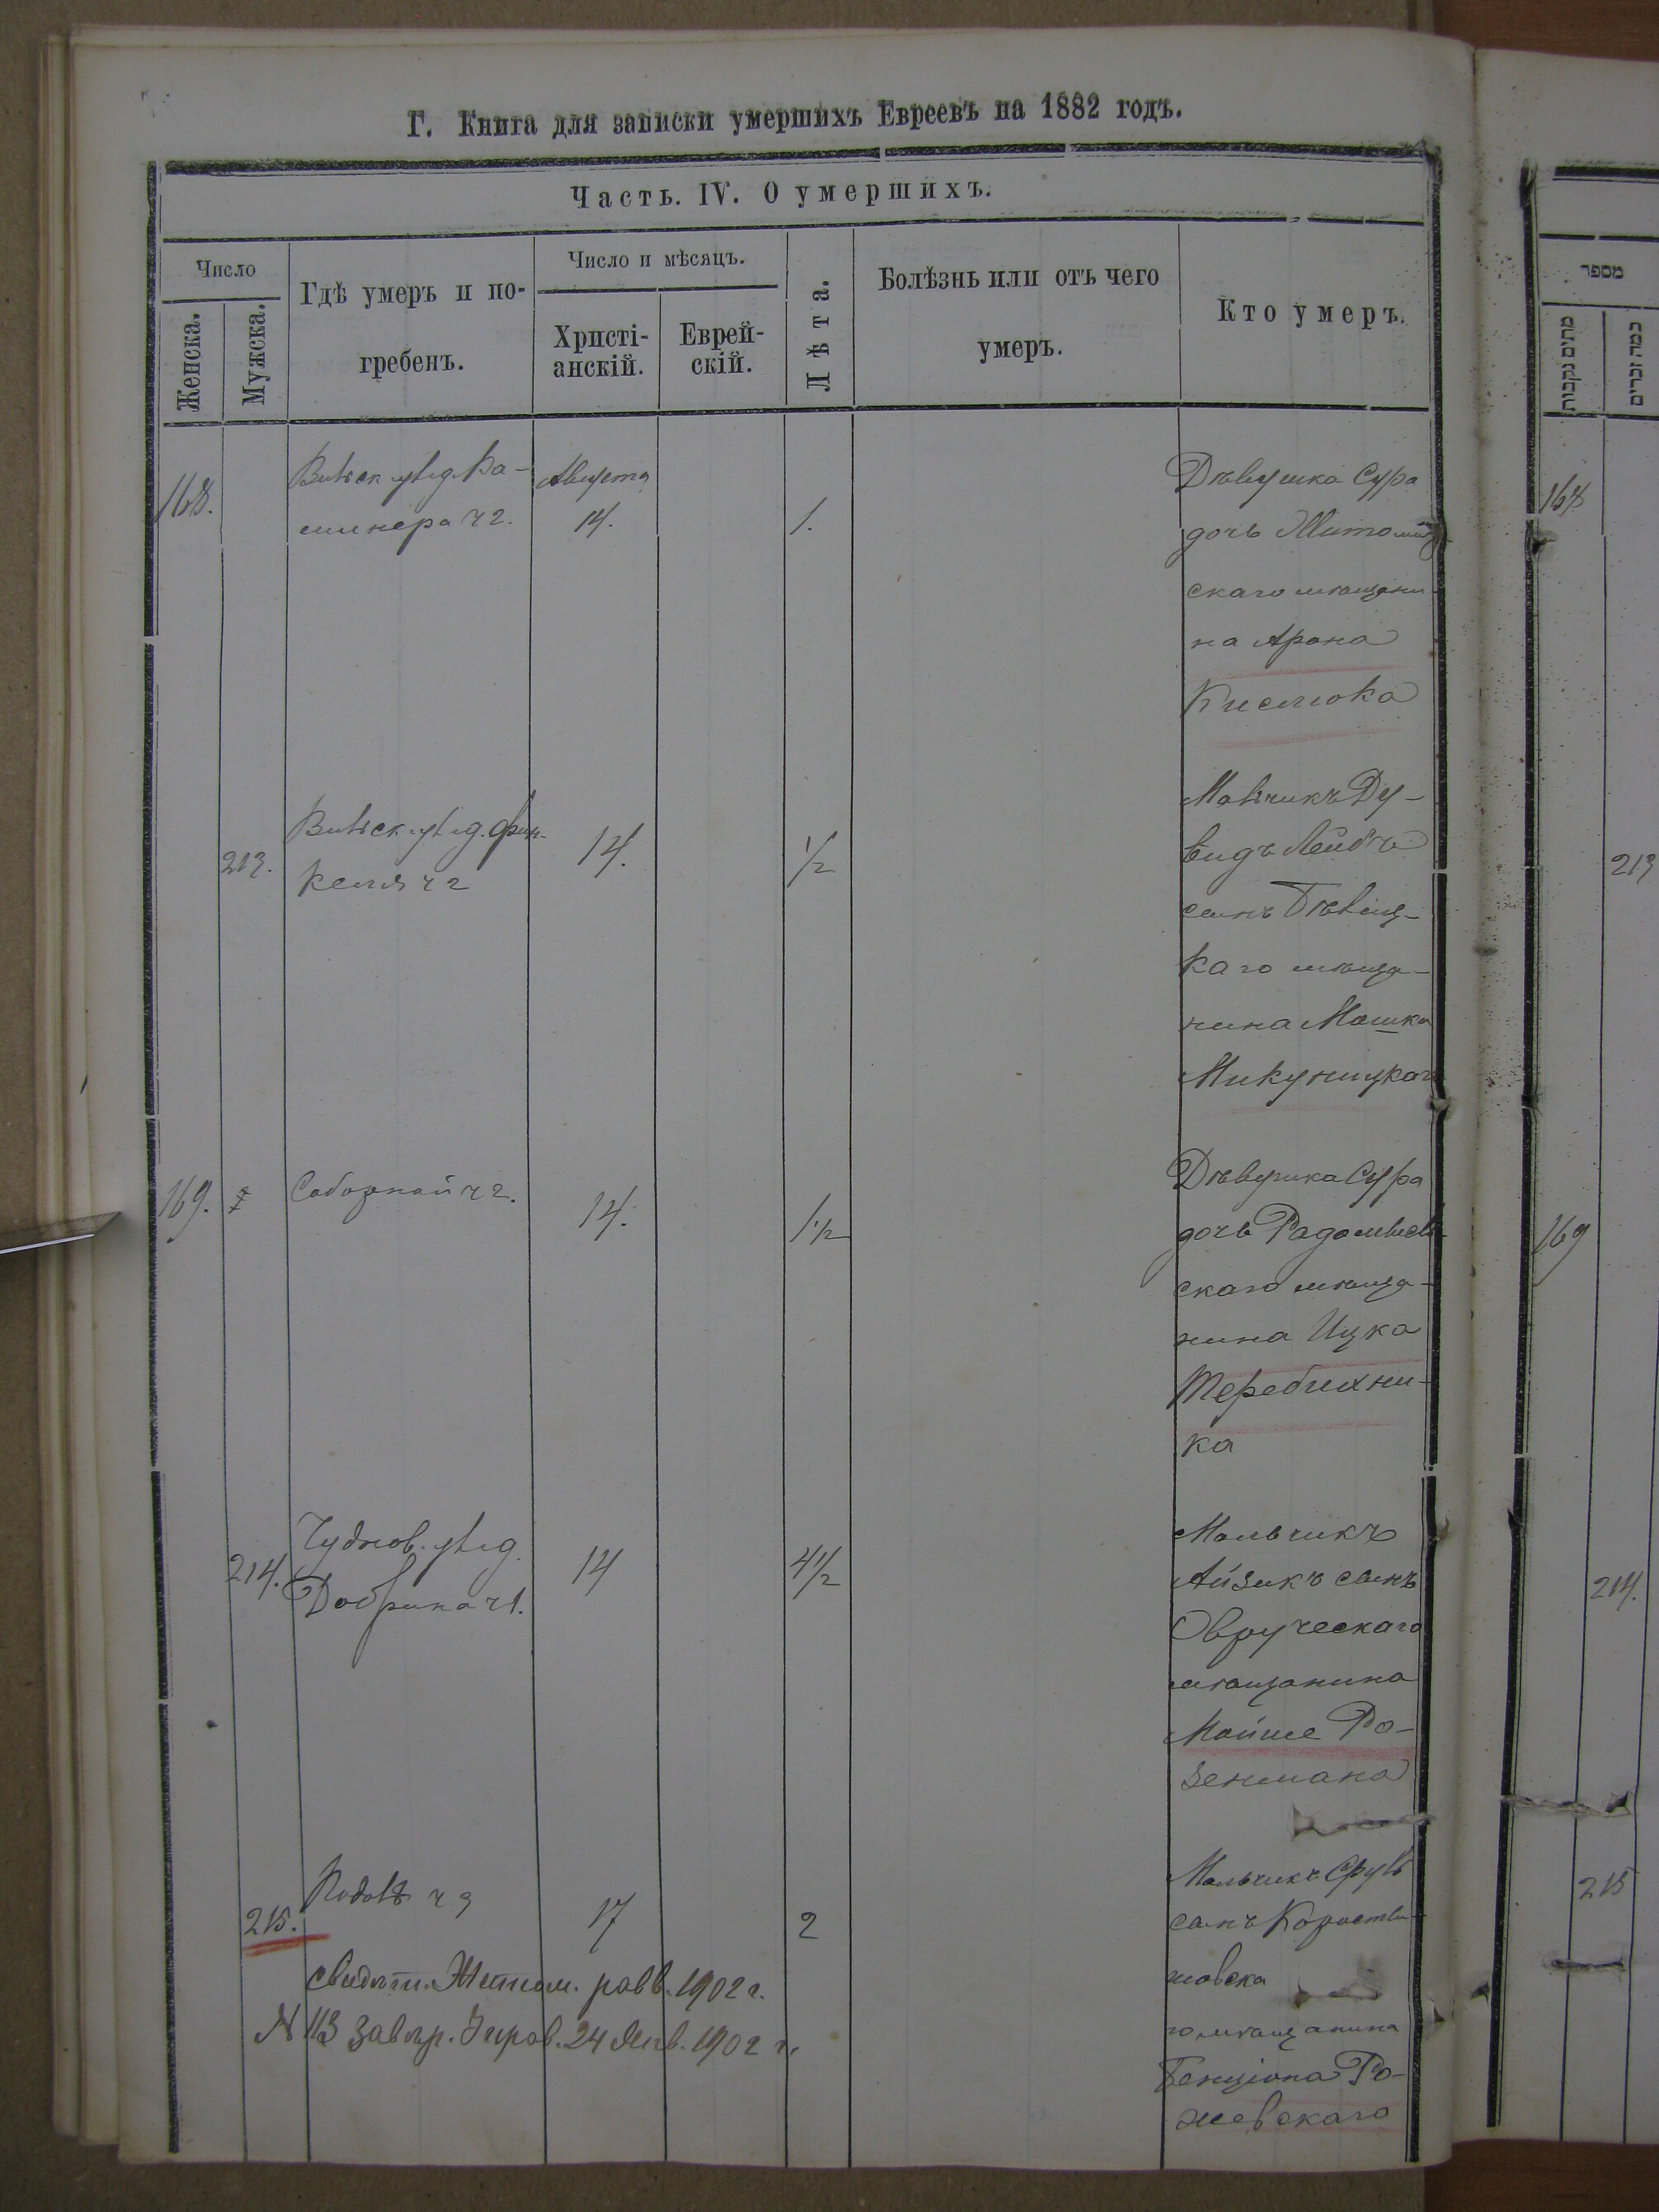 Г. Книга для записки умершихъ Евреевъ на 1882 годъ.
Часть. IV. О умершихъ.
Число
Женска.
Мужска.
Гдѣ умеръ и по-
гребенъ.
Число и мѣсяцъ.
Христі-
анскій.
Еврей-
скій.
Лѣта.
Болѣзнь или отъ чего
умеръ.
Кто умеръ.
168.
ч 2.
Августа
14.
1.
Дѣвушка Сура
дочь Житомир
скаго мѣщани
на Арона
Кислюка
213.
келя ч 2
14.
1/2
Мальчикъ Ду-
видъ Лейбъ
сынъ
каго мѣща-
нина Мошка
Микуницкаго
169.
Соборной ч 2.
14.
1 1/2
Дѣвушка Сура
дочь Радомысль
скаго мѣща-
нина Ицка
Теребихни-
ка
214.
Чуднов. ул. д.
Добрина ч 1.
14
4 1/2
Мальчикъ
Айзикъ сынъ
Овручскаго
мѣщанина
Мойше Ро-
зенмана
215.
ч 3
17
2
Мальчикъ Сруль
сынъ Коросты-
шовска
го мѣщанина
Бенціона Ро-
жевскаго
свидѣт. Житом. равв. 1902 г.
№ 113 завѣр. 24 Янв. 1902 г.
מספר
168
213
169
214.
215